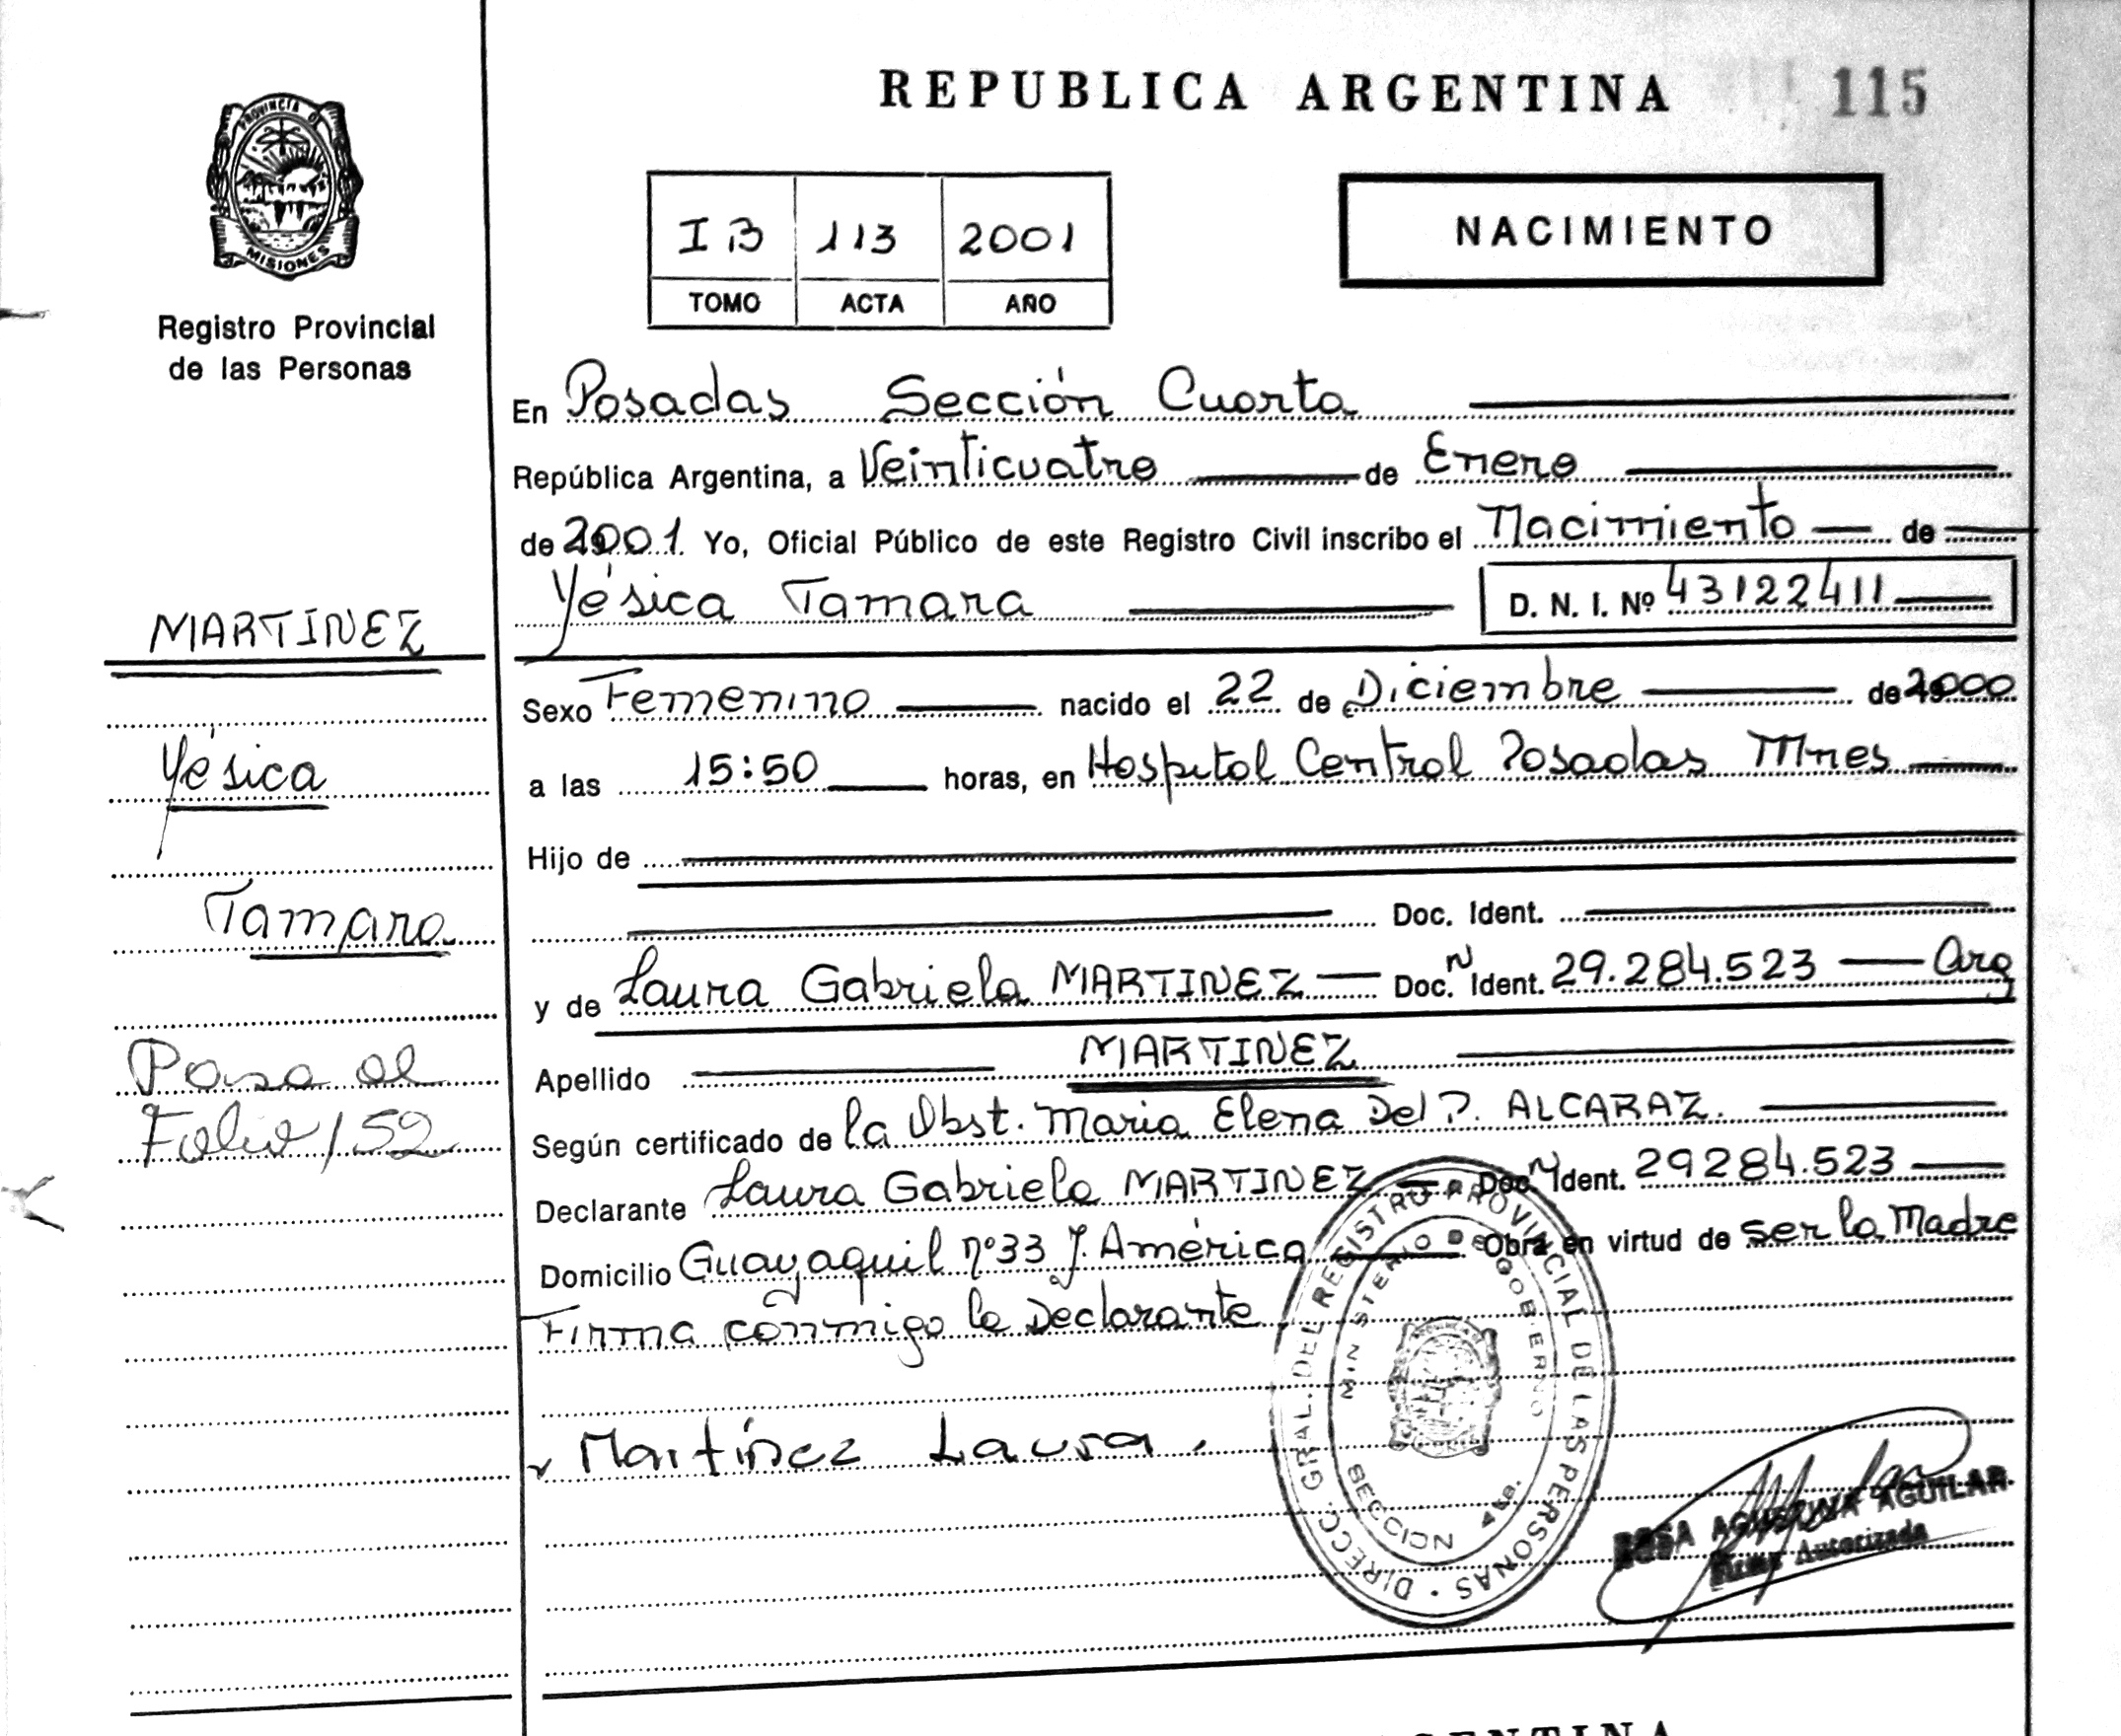 REPUBLICA ARGENTINA 115
PROVINCIA DE
MISIONES
Registro Provincial
de las Personas
I B 113 2001
TOMO ACTA AÑO
NACIMIENTO
En Posadas Sección Cuarta
República Argentina, a Veinticuatro de Enero
de 2001. Yo, Oficial Público de este Registro Civil inscribo el Nacimiento de
Yésica Tamara D. N. I. Nº 43122411
MARTINEZ
Yésica
Tamara
Pasa al
Folio 152
Sexo Femenino nacido el 22 de Diciembre de 2000
a las 15:50 horas, en Hospital Central Posadas Mnes
Hijo de
Doc. Ident.
y de Laura Gabriela MARTINEZ Doc. N Ident. 29.284.523 Arg
Apellido MARTINEZ
Según certificado de la Obst. Maria Elena Del P. ALCARAZ.
Declarante Laura Gabriela MARTINEZ Doc. N Ident. 29284.523
Domicilio Guayaquil nº33 J. América Obra en virtud de ser la Madre
Firma conmigo la Declarante
Martínez Laura.
DIRECC. GRAL. DEL REGISTRO PROVINCIAL DE LAS PERSONAS
MINISTERIO DE GOBIERNO
SECCION 4ta.
ROSA AGUSTINA AGUILAR
Firma Autorizada